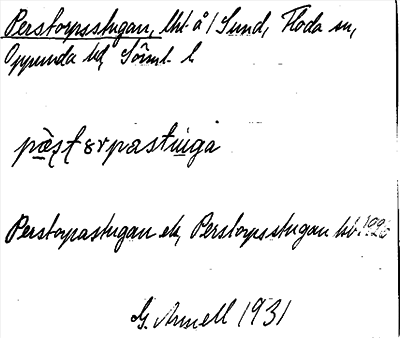 Perstorpsstugan, lht å / Sund, Floda sn,
Oppunda hd, Sörml. l.
Perstorpastugan ek, Perstorpsstugan kb. 1926
G. Arnell 1931